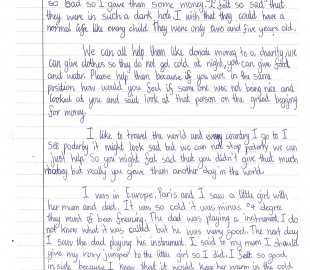 so bad so I gave them some money. I felt so sad that
they were in such a dark hole I wish that they could have a
normal life like every child. They were only two and five years old.
We can all help them like donate money to a charity, we
can give clothes so they do not get cold at night, you can give food
and water. Please help them because if you were in the same
position how would you feel if some one was not being nice and
looked at you and said look at that person on the ground begging
for money.
I like to travel the world and every country I go to I
see poderty it might look sad but we can not stop poderty we can
just help. So you might feel sad that you didn't give that much
money but really you gave them another day in the world.
I was in Europe, Paris and I saw a little girl with
her mum and dad. It was so cold it was minus degre
they must of been freezing. The dad was playing a instrument I do
not know what it was called but he was very good. The next day
I saw the dad playing his instrument. I said to my mum I should
give my jumper to the little girl so I did. I felt so good
inside because I knew that it would keep her warm in the cold